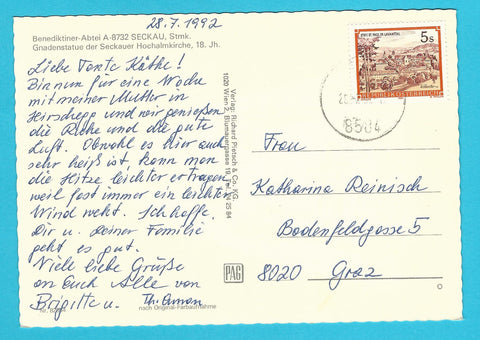 28.7.1992
Benediktiner-Abtei A-8732 SECKAU, Stmk.
Gnadenstatue der Seckauer Hochalmkirche, 18. Jh.
Liebe Tante Käthe!
Bin nun für eine Woche
mit meiner Mutter in
Hirschegg und wir genießen
die Ruhe und die gute
Luft. Obwohl es hier auch
sehr heiß ist, kann man
die Hitze leichter ertragen
weil fast immer ein leichter
Wind weht. Ich hoffe,
Dir u. Deiner Familie
geht es gut.
Viele liebe Grüße
an Euch Alle von
Brigitte u.
nach Original-Farbaufnahme
Verlag: Richard Pietsch & Co. KG.
1020 Wien 2, Blumauergasse 19, Tel. 24 25 84
PAG
5s
REPUBLIK ÖSTERREICH
8584
Frau
Katharina Reinisch
Bodenfeldgasse 5
8020 Graz